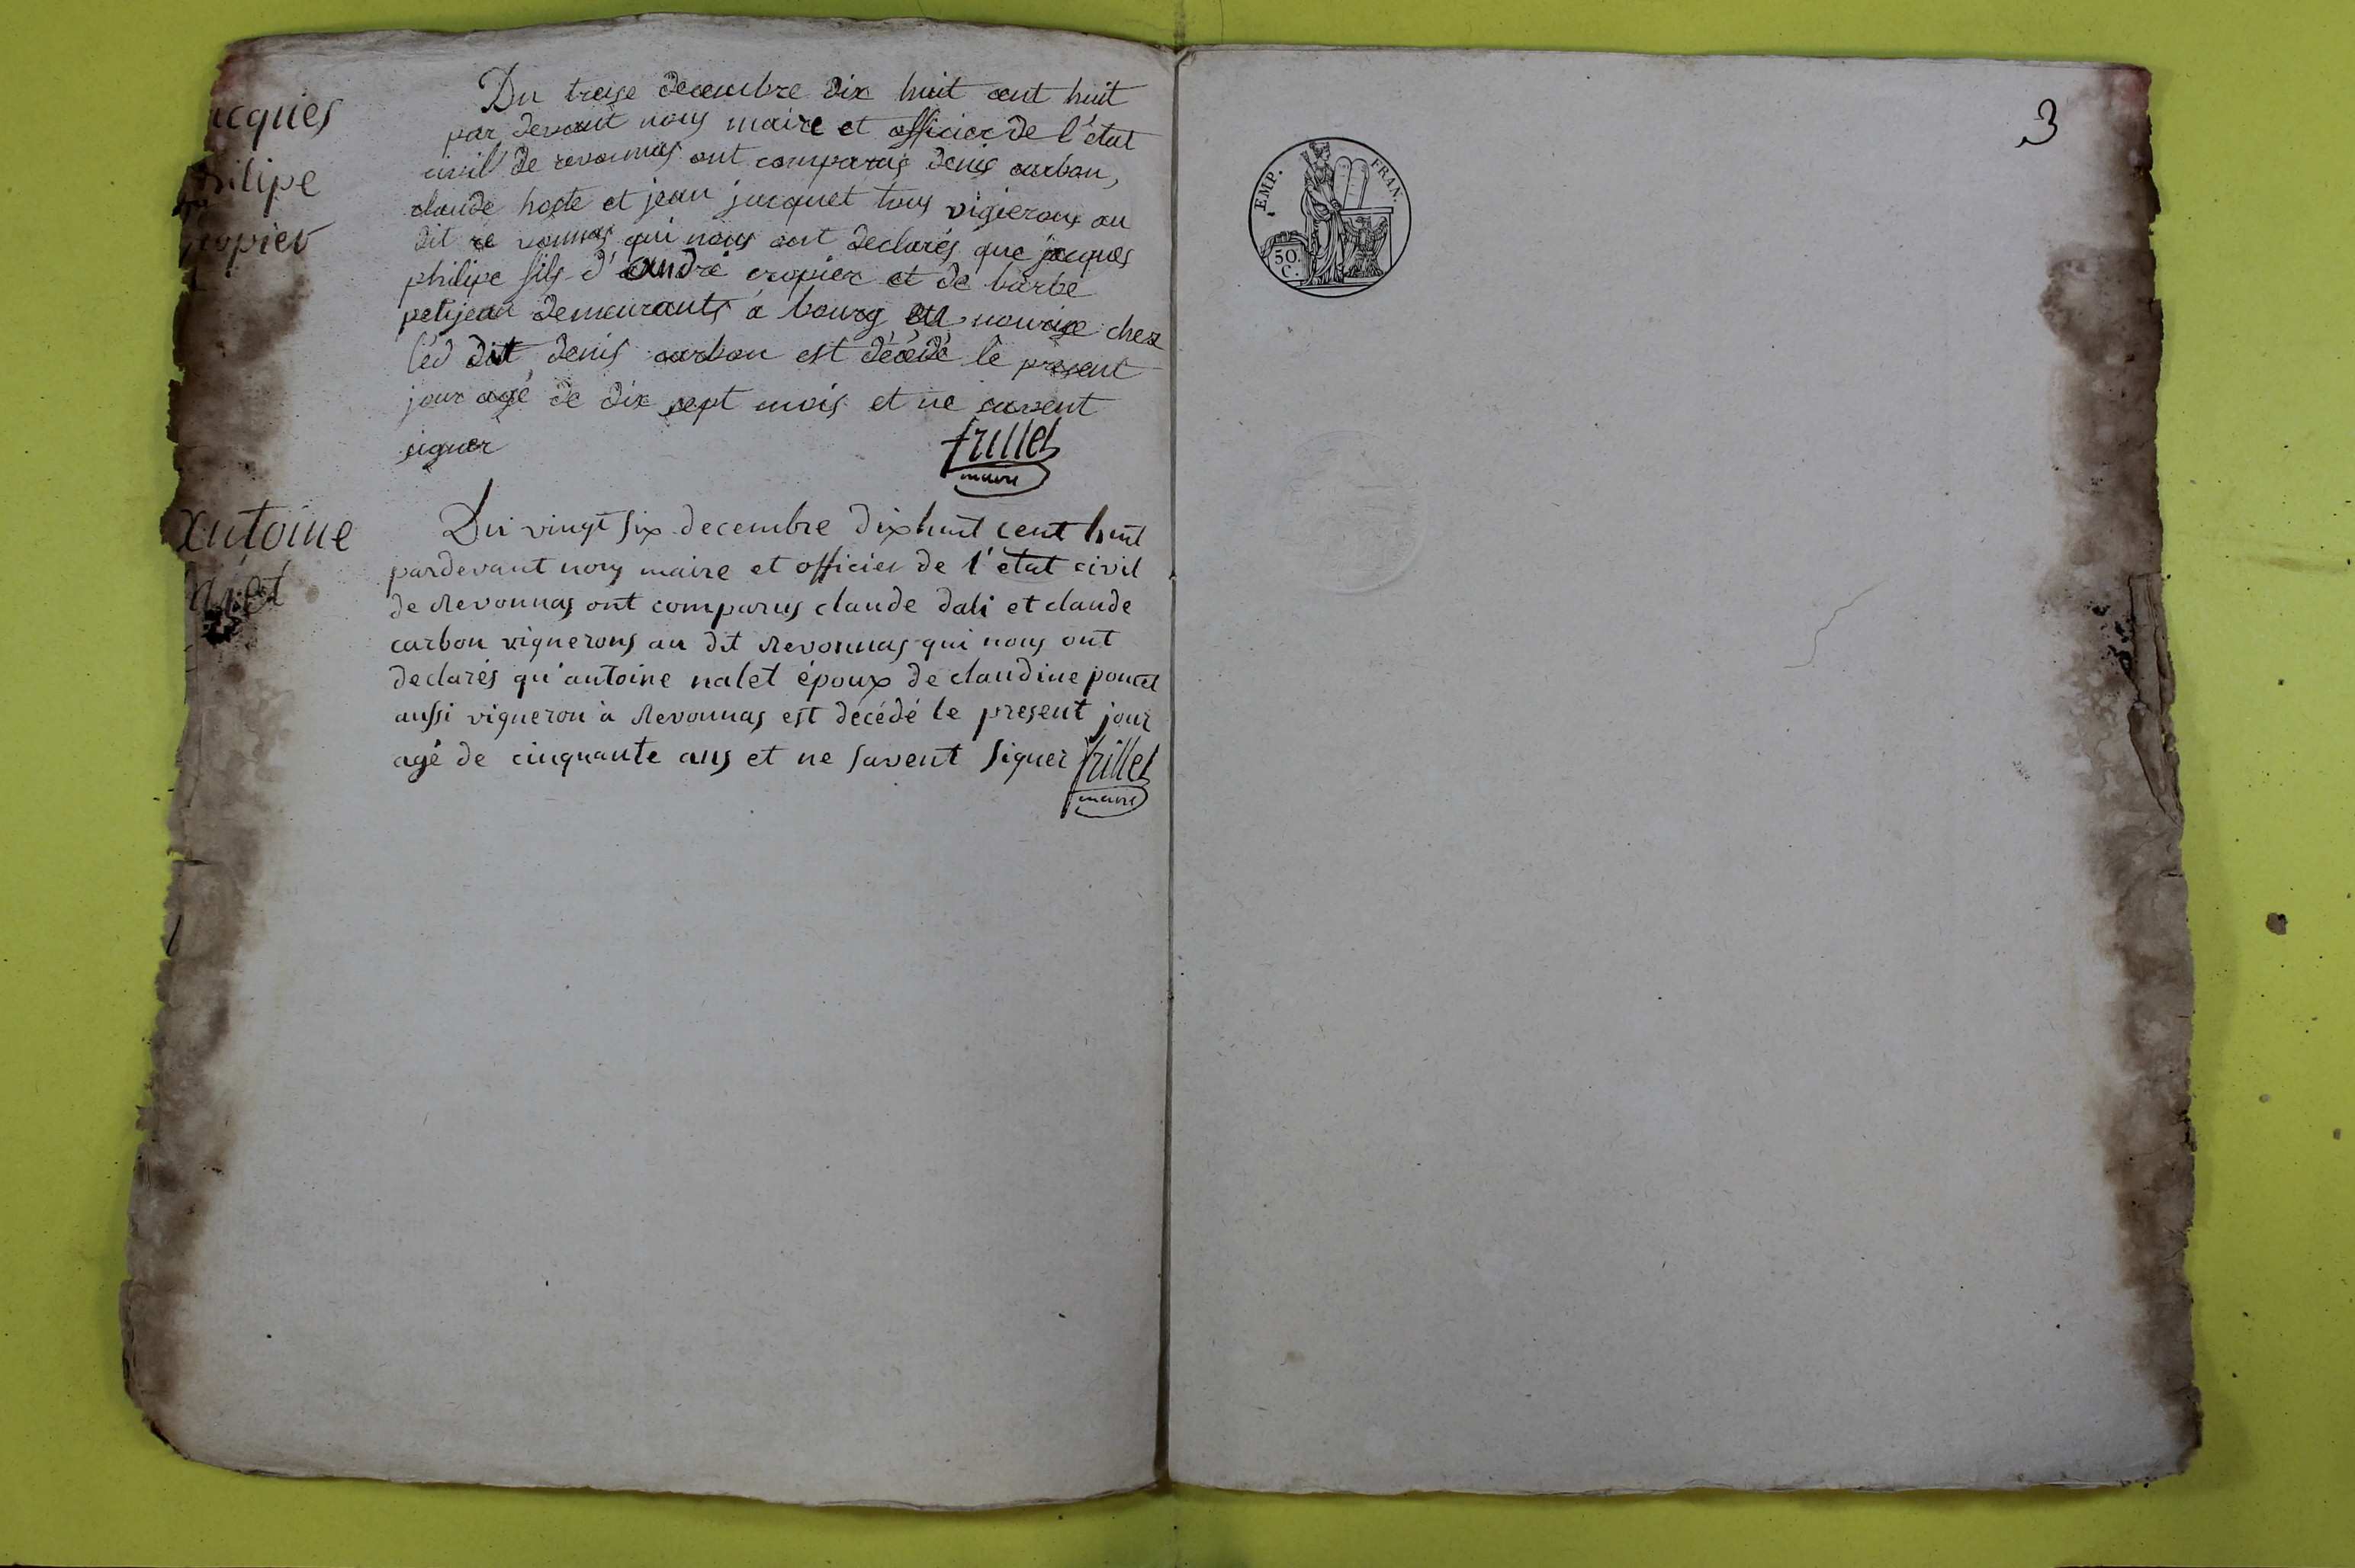 acques
hilipe
opier
Du treise decembre dix huit cent huit
par devant nous maire et officier de l'état
civil de revonnas ont comparus denis carbon,
claude hoste et jean jacquet tous vigierons au
dit re vonnas qui nous ont declarés que jacques
philipe fils d'andré cropier et de barbe
petijean demeurants a bourg en nourise chez
led dit denis carbon est décédé le present
jour agé de dix sept mois et ne savent
signer
frillet
maire
Antoine
Du vingt six decembre dix huit cent huit
pardevant nous maire et officier de l'état civil
de Revonnas ont comparus claude dali et claude
carbon vignerons au dit Revonnas qui nous ont
declarés qu'antoine nalet époux de claudine poncet
aussi vigneron à Revonnas est décédé le present jour
agé de cinquante ans et ne savent signer frillet
maire
3
EMP. FRAN.
50.
C.